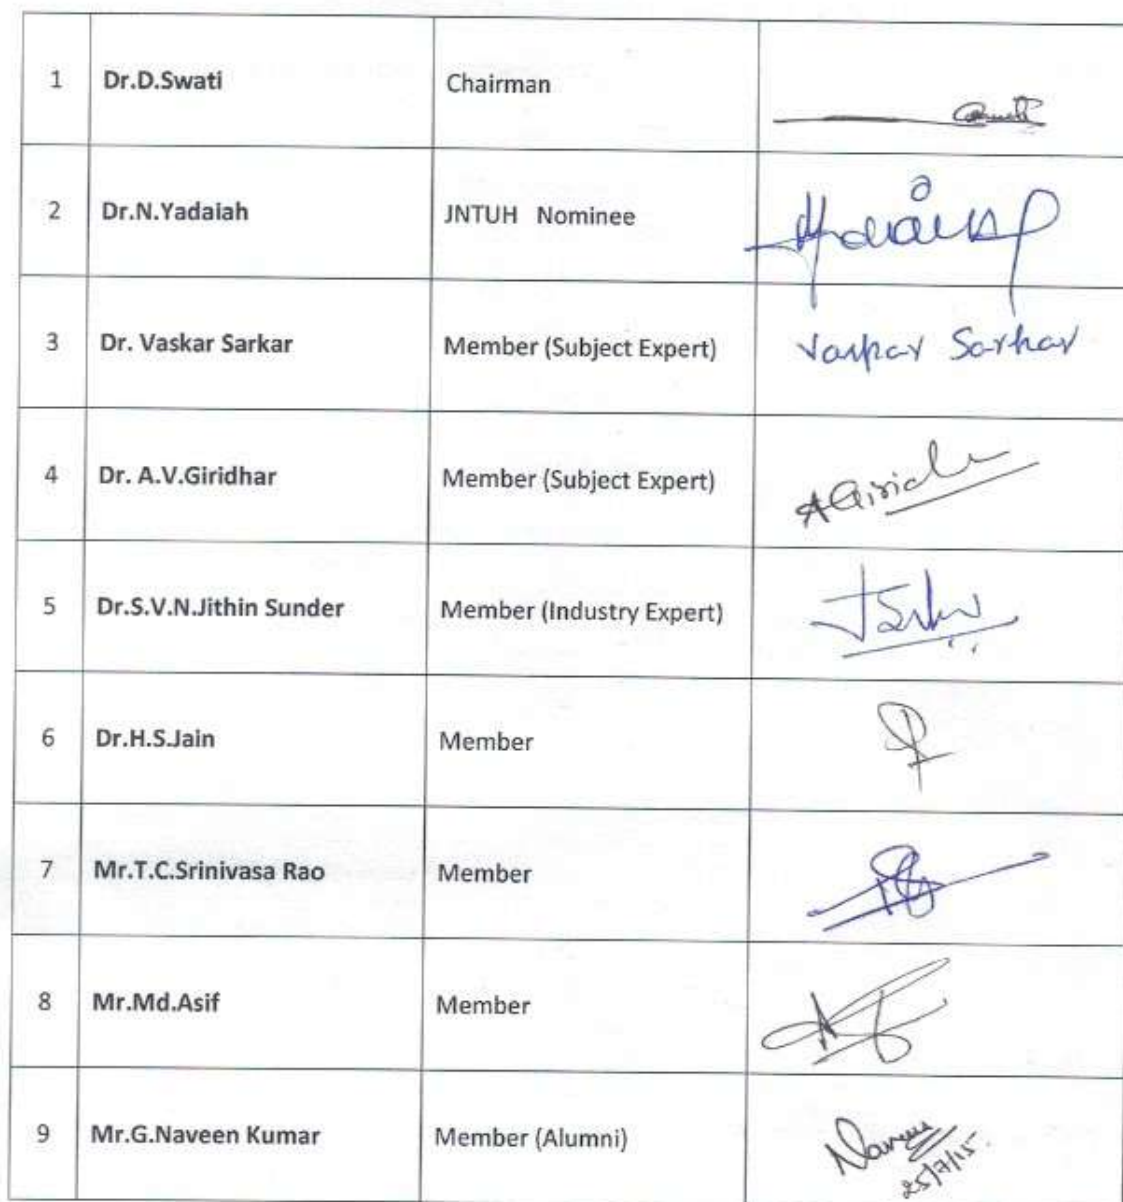 1 Dr.D.Swati Chairman
2 Dr.N.Yadaiah JNTUH Nominee
3 Dr. Vaskar Sarkar Member (Subject Expert) Vaskar Sarkar
4 Dr. A.V.Giridhar Member (Subject Expert)
5 Dr.S.V.N.Jithin Sunder Member (Industry Expert)
6 Dr.H.S.Jain Member
7 Mr.T.C.Srinivasa Rao Member
8 Mr.Md.Asif Member
9 Mr.G.Naveen Kumar Member (Alumni)
25/7/15